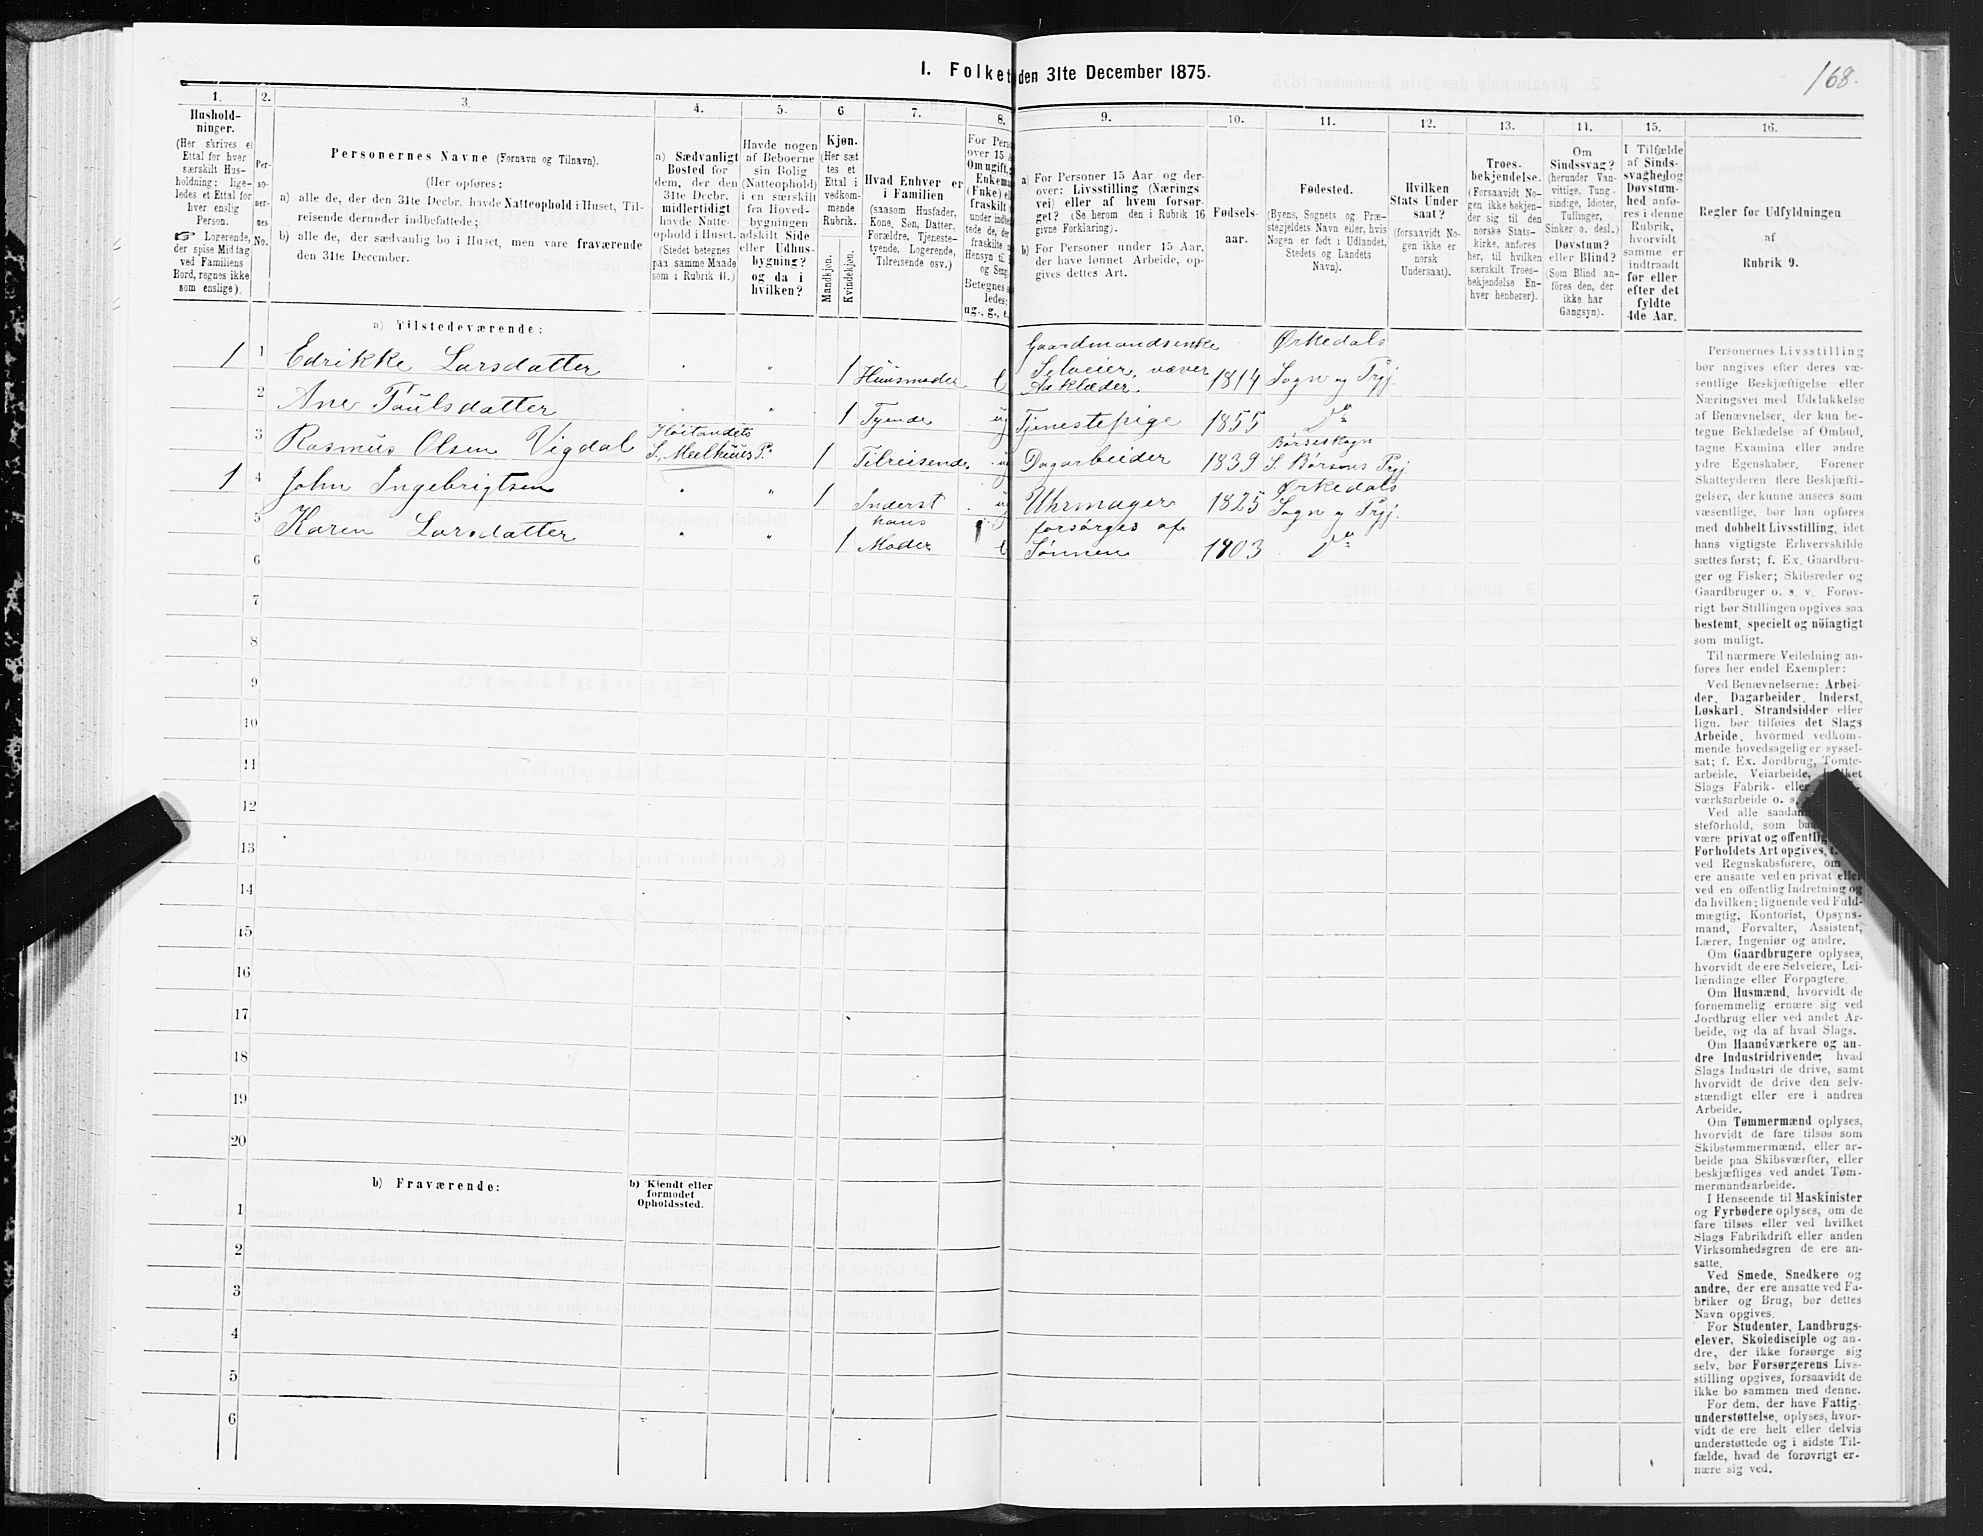 I. Folket
den 31te December 1875.
168.
1.
2.
3.
4.
5.
6
7.
8.
9.
10.
11.
12.
13.
14.
15.
16.
Hushold-
ninger.
(Her skrives et
Ettal for hver
særskilt Hus-
holdning; lige-
ledes et Ettal for
hver enslig
Person.
☞ Logerende,
der spise Middag
ved Familiens
Bord, regnes ikke
som enslige).
Per-
so-
ner-
nes
No.
Personernes Navne (Fornavn og Tilnavn).
(Her opføres:
a) alle de, der den 31te Decbr. havde Natteophold i Huset, Til-
reisende derunder indbefattede;
b) alle de, der sædvanlig bo i Huset, men vare fraværende
den 31te December.
a) Sædvanligt
Bosted for
dem, der den
31te Decbr.
midlertidigt
havde Natte-
ophold i Huset.
(Stedet betegnes
paa samme Maade
som i Rubrik 11.)
Havde nogen
af Beboerne
sin Bolig
(Natteophold)
i en særskilt
fra Hoved-
bygningen
adskilt Side
eller Udhus-
bygning?
og da i
hvilken?
Kjøn.
(Her sæt
tes et
Ettal i
vedkom-
mende
Rubrik.
Mandkjøn.
Kvindekjøn.
Hvad Enhver er
i Familien
(saasom Husfader,
Kone, Søn, Datter,
Forældre, Tjeneste-
tyende, Logerende,
Tilreisende osv.)
For Pers
over 15 a
Om ugift,
Enkem
(Fnke) e
fraskilt
under indbe
tede de, de
fraskilte
Hensyn til
og Seng
Betegnes s
ledes:
ug., g., e.
a) For Personer 15 Aar og der-
over: Livsstilling (Nærings
vei) eller af hvem forsør-
get? (Se herom den i Rubrik 16
givne Forklaring).
b) For Personer under 15 Aar,
der have lønnet Arbeide, op-
gives dettes Art.
Fødsels-
aar.
Fødested.
(Byens, Sognets og Præ-
stegjeldets Navn eller, hvis
Nogen er født i Udlandet,
Stedets og Landets
Navn).
Hvilken
Stats Under-
saat?
(forsaavidt No-
gen ikke er
norsk
Undersaat).
Troes-
bekjendelse.
(Forsaavidt No-
gen ikke bekjen-
der sig til den
norske Stats-
kirke, anføres
her, til hvilken
særskilt Troes-
bekjendelse En-
hver henhører).
Om
Sindssvag?
(herunder Van-
vittige, Tung-
sindige, Idioter,
Tullinger,
Sinker o. desl.)
Døvstum?
eller Blind?
(Som Blind an-
føres den, der
ikke har
Gangsyn).
I Tilfælde
af Sinds-
svaghed og
Døvstum-
hed anfø-
res i denne
Rubrik,
hvorvidt
samme er
indtraadt
før eller
efter det
fyldte
4de Aar.
Regler for Udfyldningen
af
Rubrik 9.
a) Tilstedeværende:
1 1 Edrikke Larsdatter " " 1 Huusmoder e Gaardmandsenke Selveier, væver Aaklæder. 1814 Ørkedals Sogn og Prgj.
2 Ane Poulsdatter " " 1 Tyende ug Tjenestepige 1855 Do
3 Rasmus Olsen Vigdal Høilandets S. Meelhuus P. " 1 Tilreisende ug Dagarbeider 1839 Børseskogn S. Børsens Prgj
1 4 John Ingebrigtsen " " 1 Inderst ug Uhrmager 1825 Ørkedals Sogn og Prgj.
5 Karen Larsdatter " " 1 hans Moder e forsørges af Sønnen 1803 Do
6
7
8
9
10
11
12
13
14
15
16
17
18
19
20
b) Fraværende:
b) Kjendt eller
formodet
Opholdssted.
1
2
3
4
5
6
Personernes Livsstilling
bør angives efter deres væ-
sentlige Beskjæftigelse eller
Næringsvei med Udelukkelse
af Benævnelser, der kun be-
tegne Beklædelse af Ombud,
tagne Examina eller andre
ydre Egenskaber. Forener
Skatteyderen flere Beskjæfti-
gelser, der kunne ansees som
væsentlige, bør han opføres
med dobbelt Livsstilling, idet
hans vigtigste Erhvervskilde
sættes først; f. Ex. Gaardbru-
ger og Fisker; Skibsreder og
Gaardbruger o. s. v. Forøv-
rigt bør Stillingen opgives saa
bestemt, specielt og nøiagtigt
som muligt.
Til nærmere Veiledning an-
føres her endel Exempler:
Ved Benævnelserne: Arbei-
der, Dagarbeider, Inderst,
Løskarl, Strandsidder eller
lign. bør tilføies det Slags
Arbeide, hvormed vedkom-
mende hovedsagelig er syssel-
sat; f. Ex. Jordbrug, Tomte-
arbeide, Veiarbeide, hvilket
Slags Fabrik- eller
værksarbeide o. s.
Ved alle saadan
steforhold, som
være privat og offentlig
Forholdets Art opgives,
ved Regnskabsførere, om
ere ansatte ved en privat eller
ved en offentlig Indretning og
da hvilken; lignende ved Fuld-
mægtig, Kontorist, Opsyns-
mand, Forvalter, Assistent,
Lærer, Ingeniør og andre.
Om Gaardbrugere oplyses,
hvorvidt de ere Selveiere, Lei-
lændinge eller Forpagtere.
Om Husmænd, hvorvidt de
fornemmelig ernære sig ved
Jordbrug eller ved andet Ar-
beide, og da af hvad Slags.
Om Haandværkere og an-
dre Industridrivende, hvad
Slags Industri de drive, samt
hvorvidt de drive den selv-
stændigt eller ere i andres
Arbeide.
Om Tømmermænd oplyses,
hvorvidt de fare tilsøs som
Skibstømmermænd, eller ar-
beide paa Skibsværfter, eller
beskjæftiges ved andet Tøm-
mermandsarbeide.
I Henseende til Maskinister
og Fyrbødere oplyses, om de
fare tilsøs eller ved hvilket
Slags Fabrikdrift eller anden
Virksomhedsgren de ere an-
satte.
Ved Smede, Snedkere og
andre, der ere ansatte ved Fa-
briker og Brug, bør dettes
Navn opgives.
For Studenter, Landbrugs-
elever, Skoledisciple og an-
dre, der ikke forsørge sig
selv, bør Forsørgerens Livs-
stilling opgives, forsaavidt de
ikke bo sammen med denne.
For dem, der have Fattig-
understøttelse, oplyses, hvor-
vidt de ere helt eller delvis
understøttede og i sidste Til-
fælde, hvad de forøvrigt er-
nære sig ved.